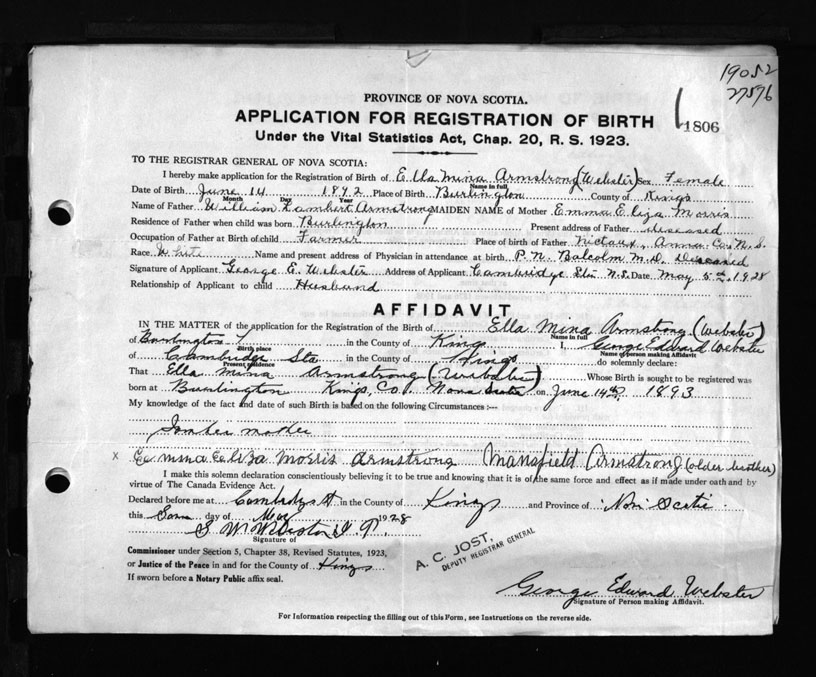 19052
27576
PROVINCE OF NOVA SCOTIA.
APPLICATION FOR REGISTRATION OF BIRTH
1806
Under the Vital Statistics Act, Chap. 20, R. S. 1923.
TO THE REGISTRAR GENERAL OF NOVA SCOTIA:
I hereby make application for the Registration of Birth of Ella Mina Armstrong (Webster) Sex Female
Name in full
Date of Birth June 14 1892 Place of Birth Burlington County of Kings
Month Day Year
Name of Father William Lambert Armstrong MAIDEN NAME of Mother Emma Eliza Morris
Residence of Father when child was born Burlington Present address of Father deseased
Occupation of Father at Birth of child Farmer Place of birth of Father Nictaux, Anna. Co. N. S.
Race White Name and present address of Physician in attendance at birth P. N. Balcolm M. D. Deseased
Signature of Applicant George E. Webster Address of Applicant Cambridge Stn N.S. Date May 5th, 1928
Relationship of Applicant to child Husband
AFFIDAVIT
IN THE MATTER of the application for the Registration of the Birth of Ella Mina Armstrong (Webster)
Name in full
of Burlington in the County of Kings I, George Edward Webster
Birth place
Name of person making Affidavit
of Cambridge Sta in the County of Kings do solemnly declare:
Present residence
That Ella Mina Armstrong (Webster) Whose Birth is sought to be registered was
born at Burlington Kings, Co. Nova Scotia on June 14th 1893
My knowledge of the fact and date of such Birth is based on the following Circumstances :—
mother
x Emma Eliza Morris Armstrong Mansfield Armstrong (older brother)
I make this solemn declaration conscientiously believing it to be true and knowing that it is of the same force and effect as if made under oath and by
virtue of The Canada Evidence Act.
Declared before me at in the County of Kings and Province of Nova Scotia
this day of May 1928
Signature of
Commissioner under Section 5, Chapter 38, Revised Statutes, 1923,
or Justice of the Peace in and for the County of Kings
If sworn before a Notary Public affix seal.
A. C. JOST,
DEPUTY REGISTRAR GENERAL
George Edward Webster
Signature of Person making Affidavit.
For Information respecting the filling out of this Form, see Instructions on the reverse side.